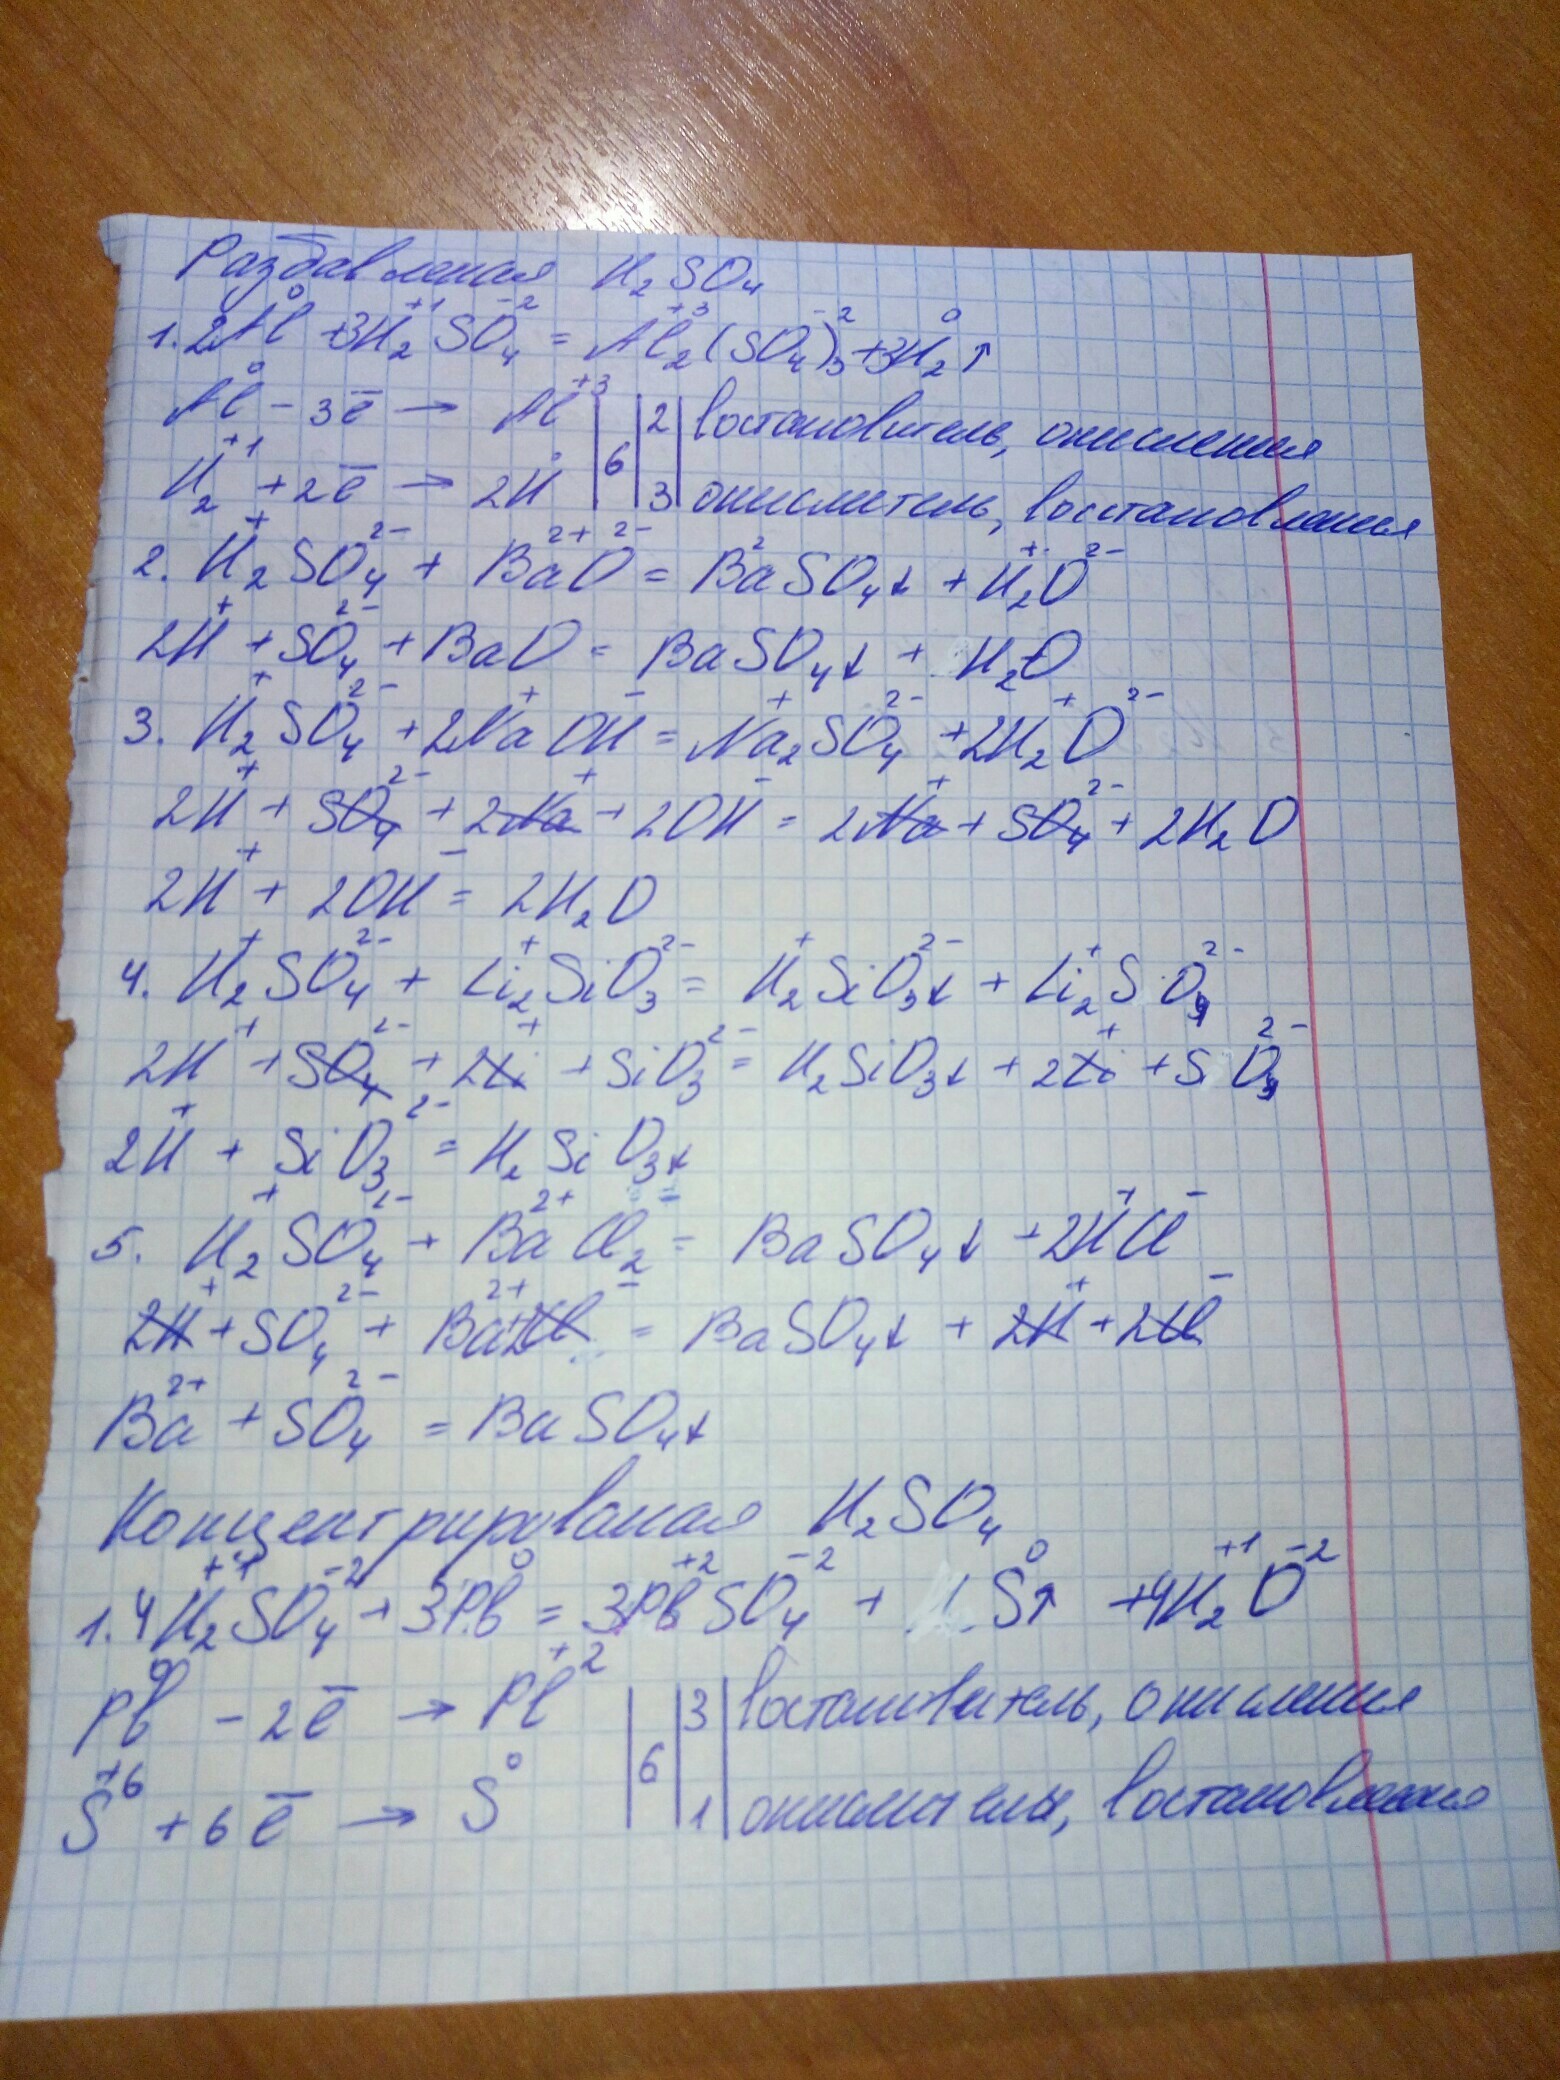 Раздавленая H₂SO₄
1. 2Al⁰ + 3H₂⁺¹SO₄⁻² = Al₂⁺³(SO₄)₃⁻² + 3H₂⁰↑
Al⁰ - 3ē → Al⁺³ | 6 | 2 | востановитель, окисления
H₂⁺¹ + 2ē → 2H⁰ | 3 | окислитель, восстановления
2. H₂⁺SO₄²⁻ + Ba²⁺O²⁻ = Ba²SO₄↓ + H₂⁺O²⁻
2H⁺ + SO₄²⁻ + BaO = BaSO₄↓ + H₂O
3. H₂⁺SO₄²⁻ + 2Na⁺OH⁻ = Na₂⁺SO₄²⁻ + 2H₂⁺O²⁻
2H⁺ + SO₄²⁻ + 2Na⁺ + 2OH⁻ = 2Na⁺ + SO₄²⁻ + 2H₂O
2H⁺ + 2OH⁻ = 2H₂O
4. H₂⁺SO₄²⁻ + Li₂⁺SiO₃²⁻ = H₂⁺SiO₃²⁻↓ + Li₂⁺SO₄²⁻
2H⁺ + SO₄²⁻ + 2Li⁺ + SiO₃²⁻ = H₂SiO₃↓ + 2Li⁺ + SO₄²⁻
2H⁺ + SiO₃²⁻ = H₂SiO₃↓
5. H₂⁺SO₄²⁻ + Ba²⁺Cl₂⁻ = BaSO₄↓ + 2H⁺Cl⁻
2H⁺ + SO₄²⁻ + Ba²⁺ + 2Cl⁻ = BaSO₄↓ + 2H⁺ + 2Cl⁻
Ba²⁺ + SO₄²⁻ = BaSO₄↓
Концентрированая H₂SO₄
1. 4H₂⁺¹SO₄⁻² + 3Pb⁰ = 3Pb⁺²SO₄⁻² + S⁰↑ + 4H₂⁺¹O⁻²
Pb⁰ - 2ē → Pb⁺² | 6 | 3 | востановитель, окисления
S⁺⁶ + 6ē → S⁰ | 1 | окислитель, востановления